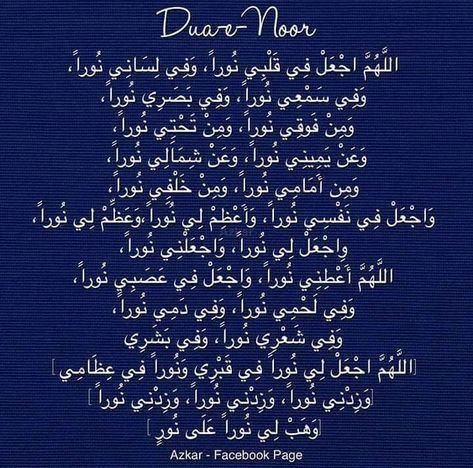 Dua-e-Noor
اللَّهُمَّ اجْعَلْ فِي قَلْبِي نُوراً، وَفِي لِسَانِي نُوراً،
وَفِي سَمْعِي نُوراً، وَفِي بَصَرِي نُوراً،
وَمِنْ فَوْقِي نُوراً، وَمِنْ تَحْتِي نُوراً،
وَعَنْ يَمِينِي نُوراً، وَعَنْ شِمَالِي نُوراً،
وَمِن أَمَامِي نُوراً، وَمِنْ خَلْفِي نُوراً،
وَاجْعَلْ فِي نَفْسِي نُوراً، وَأَعْظِمْ لِي نُوراً،وَعَظِّمْ لِي نُوراً،
وِاجْعَلْ لِي نُوراً، وَاجْعَلْنِي نُوراً،
اللَّهُمَّ أَعْطِنِي نُوراً، وَاجْعَلْ فِي عَصَبِي نُوراً،
وَفِي لَحْمِي نُوراً، وَفِي دَمِي نُوراً،
وَفِي شَعْرِي نُوراً، وَفِي بَشَرِي
[اللَّهُمَّ اجْعَلْ لِي نُوراً فِي قَبْرِي وَنُوراً فِي عِظَامِي]
[وَزِدْنِي نُوراً، وَزِدْنِي نُوراً، وَزِدْنِي نُوراً]
[وَهَبْ لِي نُوراً عَلَى نُورٍ]
Azkar - Facebook Page